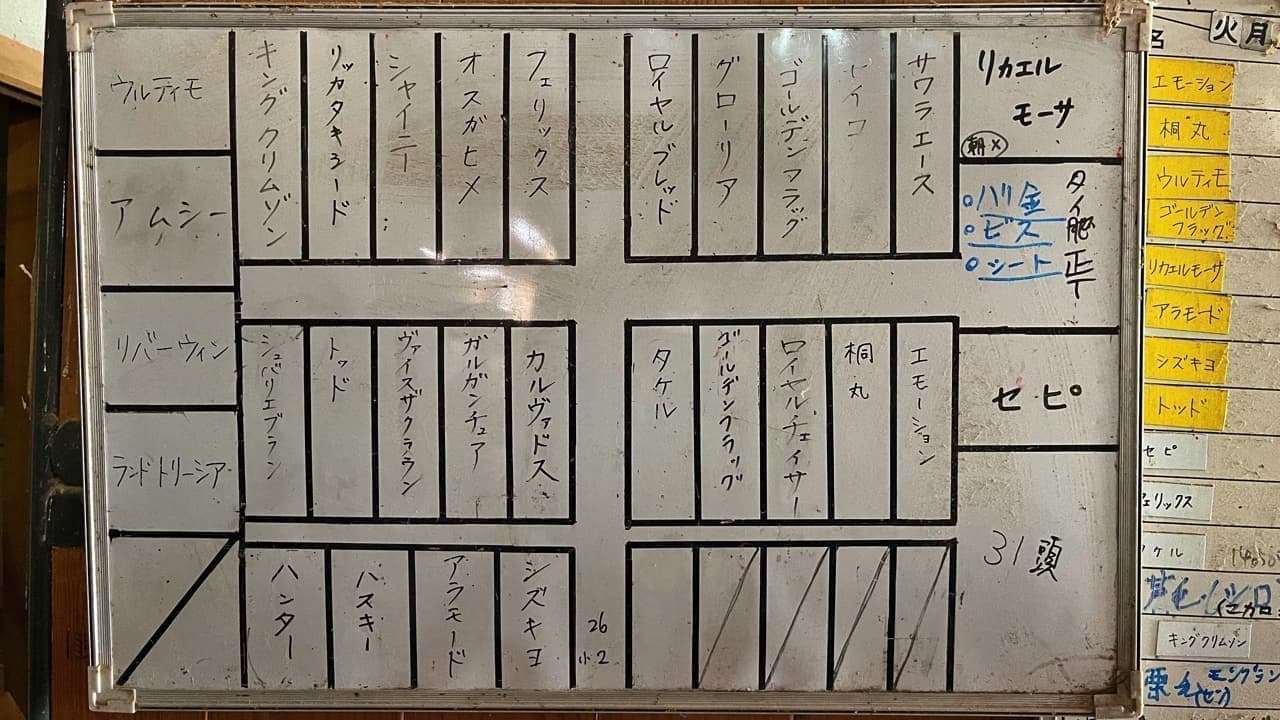 ウルティモ
アムシー
リバーウィン
ランドトリーシア
キングクリムゾン
リッカタキシード
シャイニー
オスガヒメ
フェリックス
ロイヤルブレッド
グローリア
ゴールデンフラッグ
サワラエース
リカエル
モーサ
朝×
ハリ金
ビス
シート
シュバリエブラン
トッド
ヴァイスザクラウン
ガルガンチュア
カルヴァドス
タケル
ゴールデンフラッグ
ロイヤルチェイサー
桐丸
エモーション
セピ
ハンター
ハスキー
アラモード
シズキヨ
26
小2
31頭
名
火
月
エモーション
桐丸
ウルティモ
ゴールデン
フラッグ
リカエルモーサ
アラモード
シズキヨ
トッド
セピ
ェリックス
ケル
キングクリムゾン